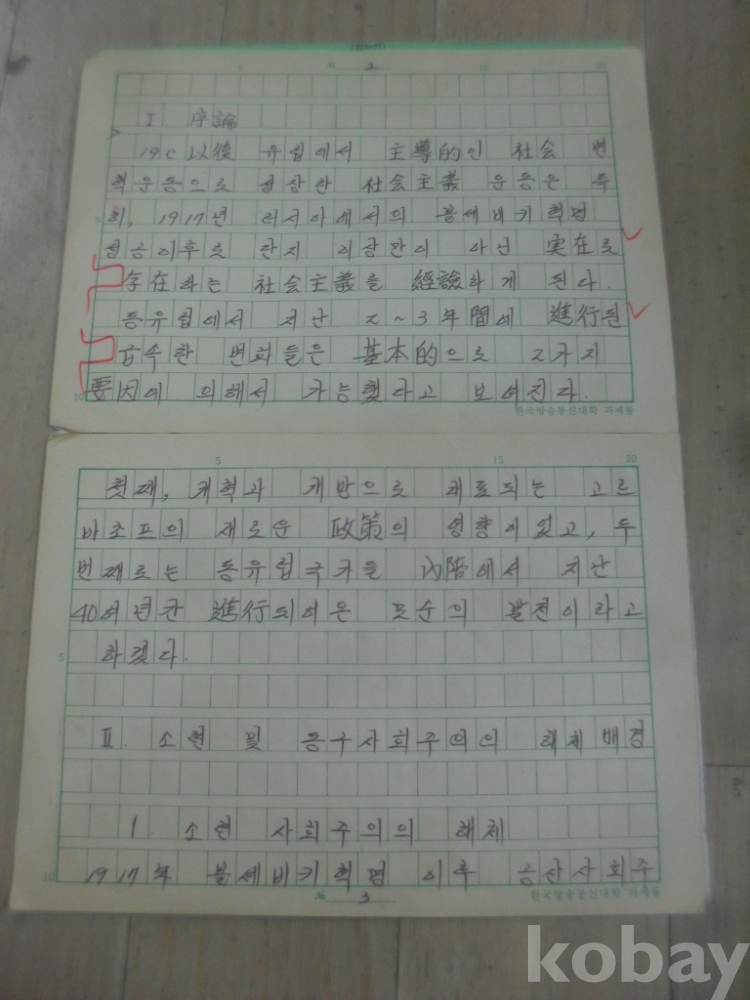 № 2
I 序論
19C 以後 유럽에서 主導的인 社会 변
혁운동으로 성장한 社会主義 운동은 특
히, 1917년 러시아에서의 볼세비키혁명
성공이후로 단지 이상만이 아닌 実在로
存在하는 社会主義를 経験하게 된다.
동유럽에서 지난 2~3年間에 進行된
급속한 변화들은 基本的으로 2가지
要因에 의해서 가능했다고 보여진다.
10 한국방송통신대학 과제물
5 15 20
첫째, 개혁과 개방으로 대표되는 고르
바초프의 새로운 政策의 영향이 있고, 두
번째로는 동유럽국가들 內階에서 지난
40여년간 進行되어온 모순의 발전이라고
5 하겠다.
II. 소련 및 동구사회주의의 해체배경
1 소련 사회주의의 해체
1917年 볼세비키혁명 이후 공산사회주
10 № 3 한국방송통신대학 과제물
kobay